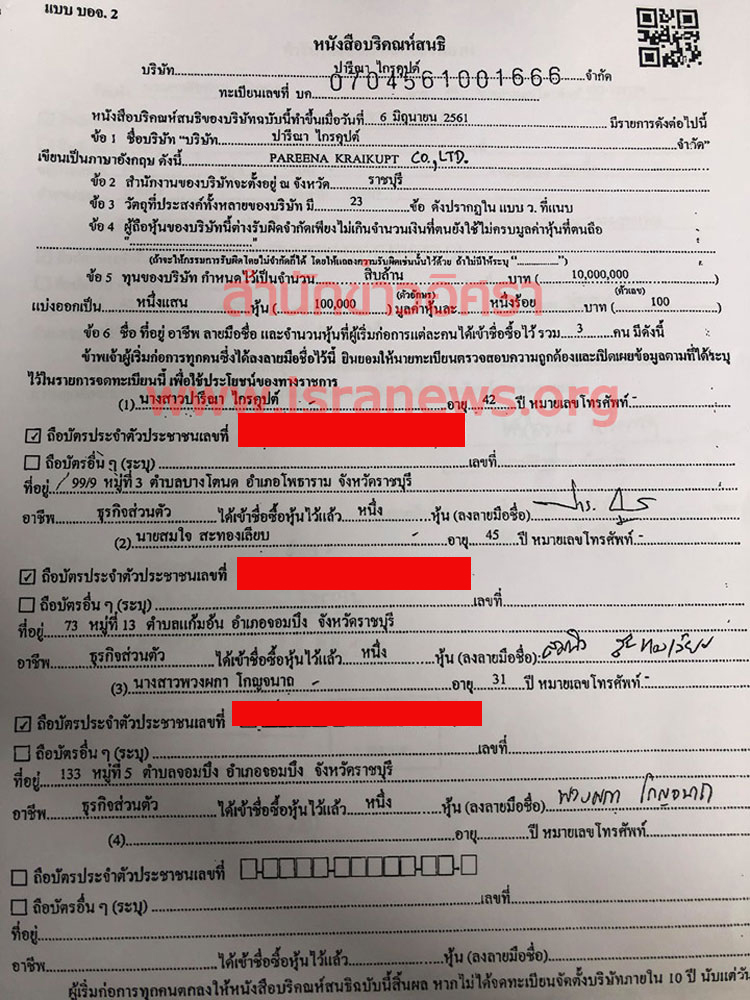 แบบ บอจ. 2
หนังสือบริคณห์สนธิ
บริษัท ปารีณา ไกรคุปต์ จำกัด
ทะเบียนเลขที่ บค. 0704561001666
หนังสือบริคณห์สนธิของบริษัทฉบับนี้ทำขึ้นเมื่อวันที่ 6 มิถุนายน 2561 มีรายการดังต่อไปนี้
ข้อ 1 ชื่อบริษัท "บริษัท ปารีณา ไกรคุปต์ จำกัด"
เขียนเป็นภาษาอังกฤษ ดังนี้ PAREENA KRAIKUPT CO.,LTD.
ข้อ 2 สำนักงานของบริษัทจะตั้งอยู่ ณ จังหวัด ราชบุรี
ข้อ 3 วัตถุที่ประสงค์ทั้งหลายของบริษัท มี 23 ข้อ ดังปรากฏใน แบบ ว. ที่แนบ
ข้อ 4 ผู้ถือหุ้นของบริษัทนี้ต่างรับผิดจำกัดเพียงไม่เกินจำนวนเงินที่ตนยังใช้ไม่ครบมูลค่าหุ้นที่ตนถือ
(ถ้าจะให้กรรมการรับผิดโดยไม่จำกัดก็ได้ โดยให้แถลงความรับผิดเช่นนั้นไว้ด้วย ถ้าไม่มีให้ระบุ "..............")
ข้อ 5 ทุนของบริษัท กำหนดไว้เป็นจำนวน สิบล้าน บาท ( 10,000,000 )
(ตัวอักษร) (ตัวเลข)
แบ่งออกเป็น หนึ่งแสน หุ้น ( 100,000 ) มูลค่าหุ้นละ หนึ่งร้อย บาท ( 100 )
สำนักข่าวอิศรา
ข้อ 6 ชื่อ ที่อยู่ อาชีพ ลายมือชื่อ และจำนวนหุ้นที่ผู้เริ่มก่อการแต่ละคนได้เข้าชื่อซื้อไว้ รวม 3 คน มีดังนี้
ข้าพเจ้าผู้เริ่มก่อการทุกคนซึ่งได้ลงลายมือชื่อไว้นี้ ยินยอมให้นายทะเบียนตรวจสอบความถูกต้องและเปิดเผยข้อมูลตามที่ได้ระบุ
ไว้ในรายการจดทะเบียนนี้ เพื่อใช้ประโยชน์ของทางราชการ
www.isranews.org
(1) นางสาวปารีณา ไกรคุปต์ อายุ 42 ปี หมายเลขโทรศัพท์ -
ถือบัตรประจำตัวประชาชนเลขที่
ถือบัตรอื่น ๆ (ระบุ) เลขที่
ที่อยู่ 99/9 หมู่ที่ 3 ตำบลบางโตนด อำเภอโพธาราม จังหวัดราชบุรี
อาชีพ ธุรกิจส่วนตัว ได้เข้าชื่อซื้อหุ้นไว้แล้ว หนึ่ง หุ้น (ลงลายมือชื่อ)
(2) นายสมใจ สะทองเลียบ อายุ 45 ปี หมายเลขโทรศัพท์ -
ถือบัตรประจำตัวประชาชนเลขที่
ถือบัตรอื่น ๆ (ระบุ) เลขที่
ที่อยู่ 73 หมู่ที่ 13 ตำบลแก้มอ้น อำเภอจอมบึง จังหวัดราชบุรี
อาชีพ ธุรกิจส่วนตัว ได้เข้าชื่อซื้อหุ้นไว้แล้ว หนึ่ง หุ้น (ลงลายมือชื่อ)
(3) นางสาวพวงผกา โกญจนาถ อายุ 31 ปี หมายเลขโทรศัพท์ -
ถือบัตรประจำตัวประชาชนเลขที่
ถือบัตรอื่น ๆ (ระบุ) เลขที่
ที่อยู่ 133 หมู่ที่ 5 ตำบลจอมบึง อำเภอจอมบึง จังหวัดราชบุรี
อาชีพ ธุรกิจส่วนตัว ได้เข้าชื่อซื้อหุ้นไว้แล้ว หนึ่ง หุ้น (ลงลายมือชื่อ) พวงผกา โกญจนาถ
(4) อายุ ปี หมายเลขโทรศัพท์
ถือบัตรประจำตัวประชาชนเลขที่
ถือบัตรอื่น ๆ (ระบุ) เลขที่
ที่อยู่
อาชีพ ได้เข้าชื่อซื้อหุ้นไว้แล้ว หุ้น (ลงลายมือชื่อ)
ผู้เริ่มก่อการทุกคนตกลงให้หนังสือบริคณห์สนธิฉบับนี้สิ้นผล หากไม่ได้จดทะเบียนจัดตั้งบริษัทภายใน 10 ปี นับแต่วัน